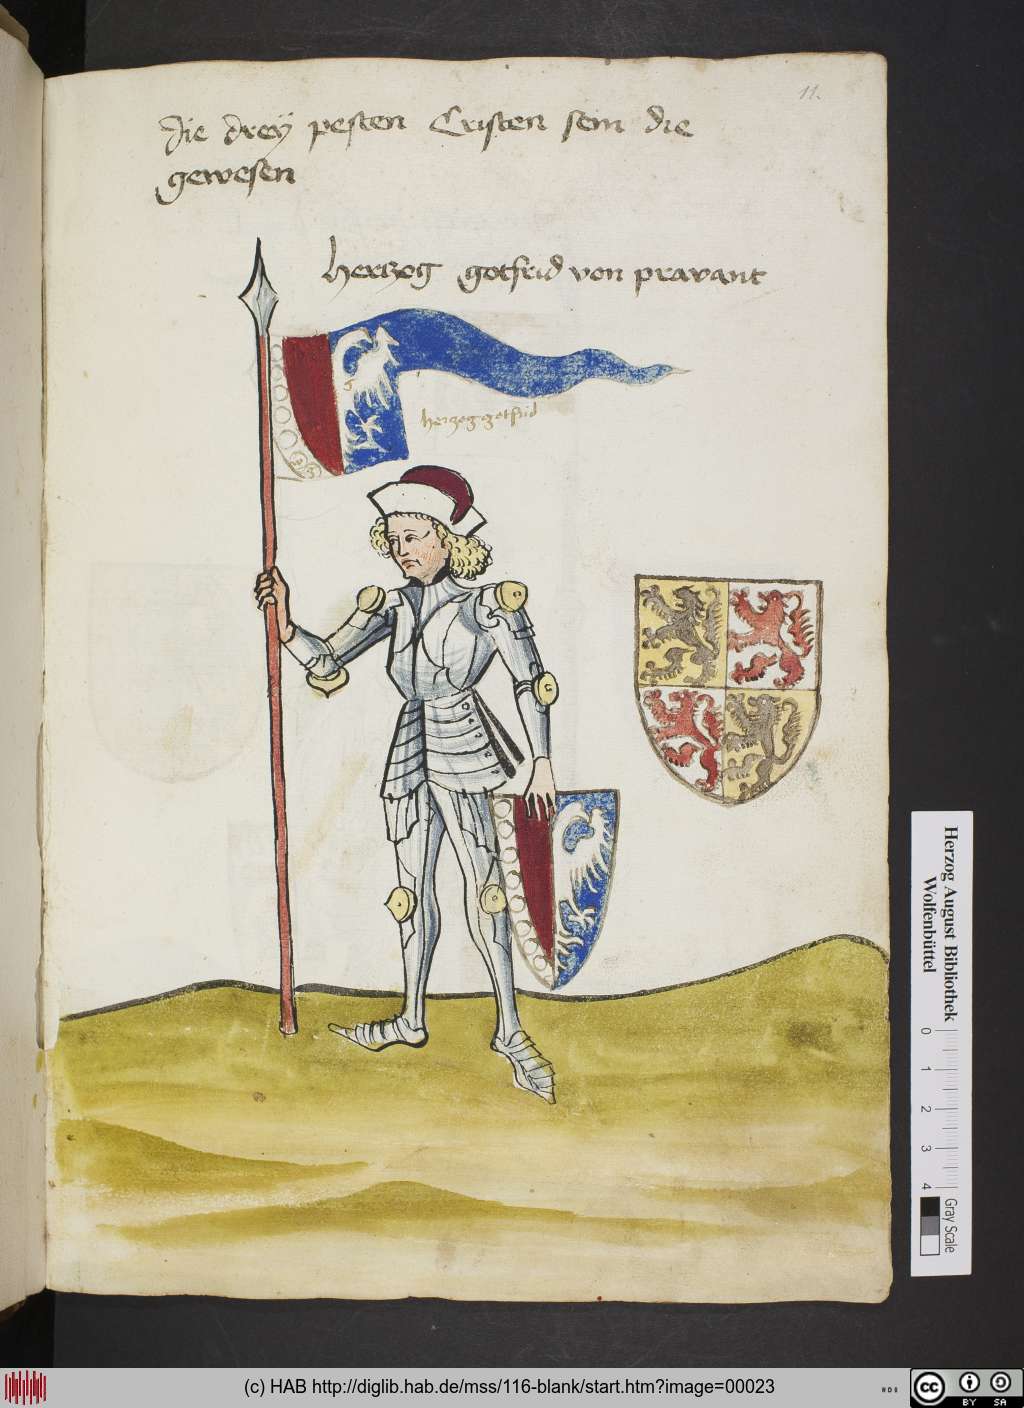 11.
Die drey pesten Cristen sein die
gewesen
hertzog gotfrid von pravant
herzog gotfrid
Herzog August Bibliothek
Wolfenbüttel
0 1 2 3 4
Gray Scale
(c) HAB http://diglib.hab.de/mss/116-blank/start.htm?image=00023
cc
BY SA